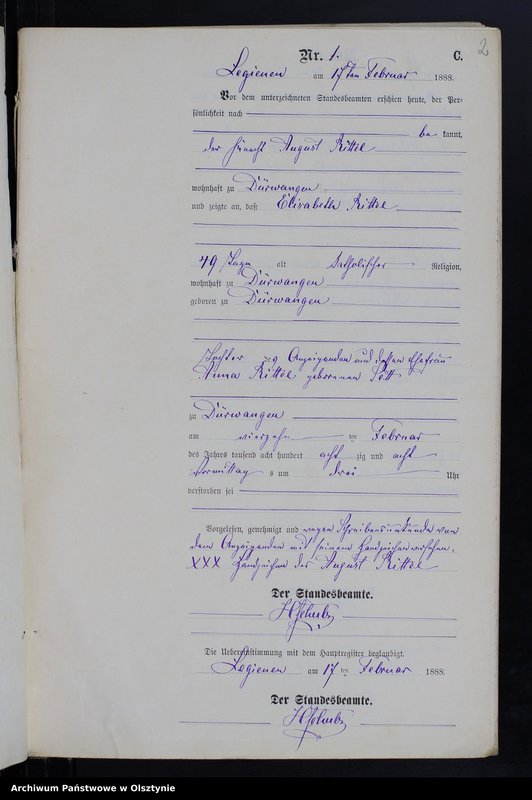 2
Nr. 1. C.
Legienen am 17ten Februar 1888.
Vor dem unterzeichneten Standesbeamten erschien heute, der Per-
sönlichkeit nach
be kannt,
der Knecht August Rittel
wohnhaft zu Dürwangen
und zeigte an, daß Elisabeth Rittel
49 Tage alt katholischer Religion,
wohnhaft zu Dürwangen
geboren zu Dürwangen
Tochter des Anzeigenden und dessen Ehefrau
Anna Rittel geborenen
zu Dürwangen
am vierzehn ten Februar
des Jahres tausend acht hundert acht zig und acht
Vormittag s um drei Uhr
verstorben sei
Vorgelesen, genehmigt und wegen Schreibensunkunde von
dem Anzeigenden mit seinem Handzeichen versehen.
XXX Handzeichen des August Rittel
Der Standesbeamte.
Die Uebereinstimmung mit dem Hauptregister beglaubigt.
Legienen am 17 ten Februar 1888.
Der Standesbeamte.
Archiwum Państwowe w Olsztynie